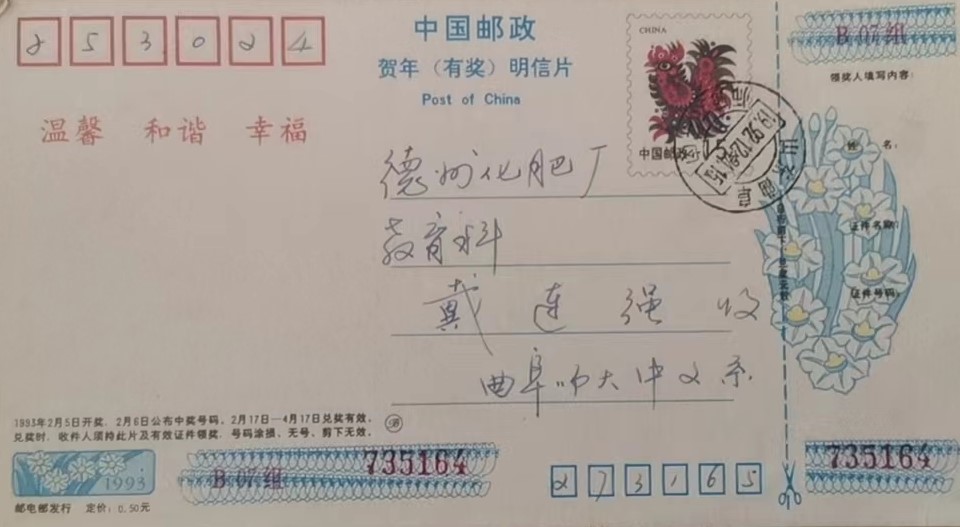 253024
中国邮政
贺年（有奖）明信片
Post of China
CHINA
中国邮政
温馨 和谐 幸福
德州化肥厂
教育科
戴连强 收
曲阜师大中文系
1993年2月5日开奖，2月6日公布中奖号码，2月17日—4月17日兑奖有效，
兑奖时，收件人须持此片及有效证件领奖，号码涂损、无号、剪下无效，
1993
邮电部发行 定价：0.50元
B 07组
735164
273165
B 07组
领奖人填写内容：
姓 名：
证件名称：
证件号码：
735164